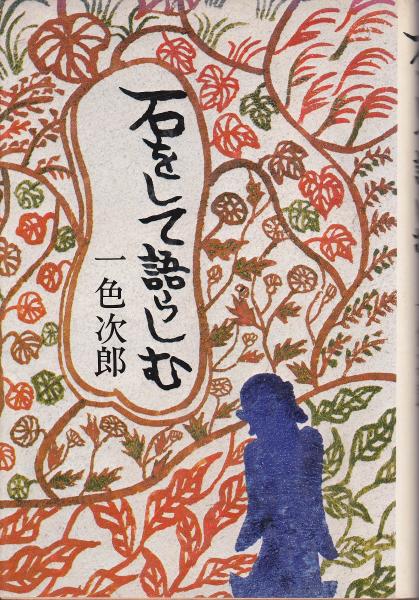 石をして語らしむ
一色次郎